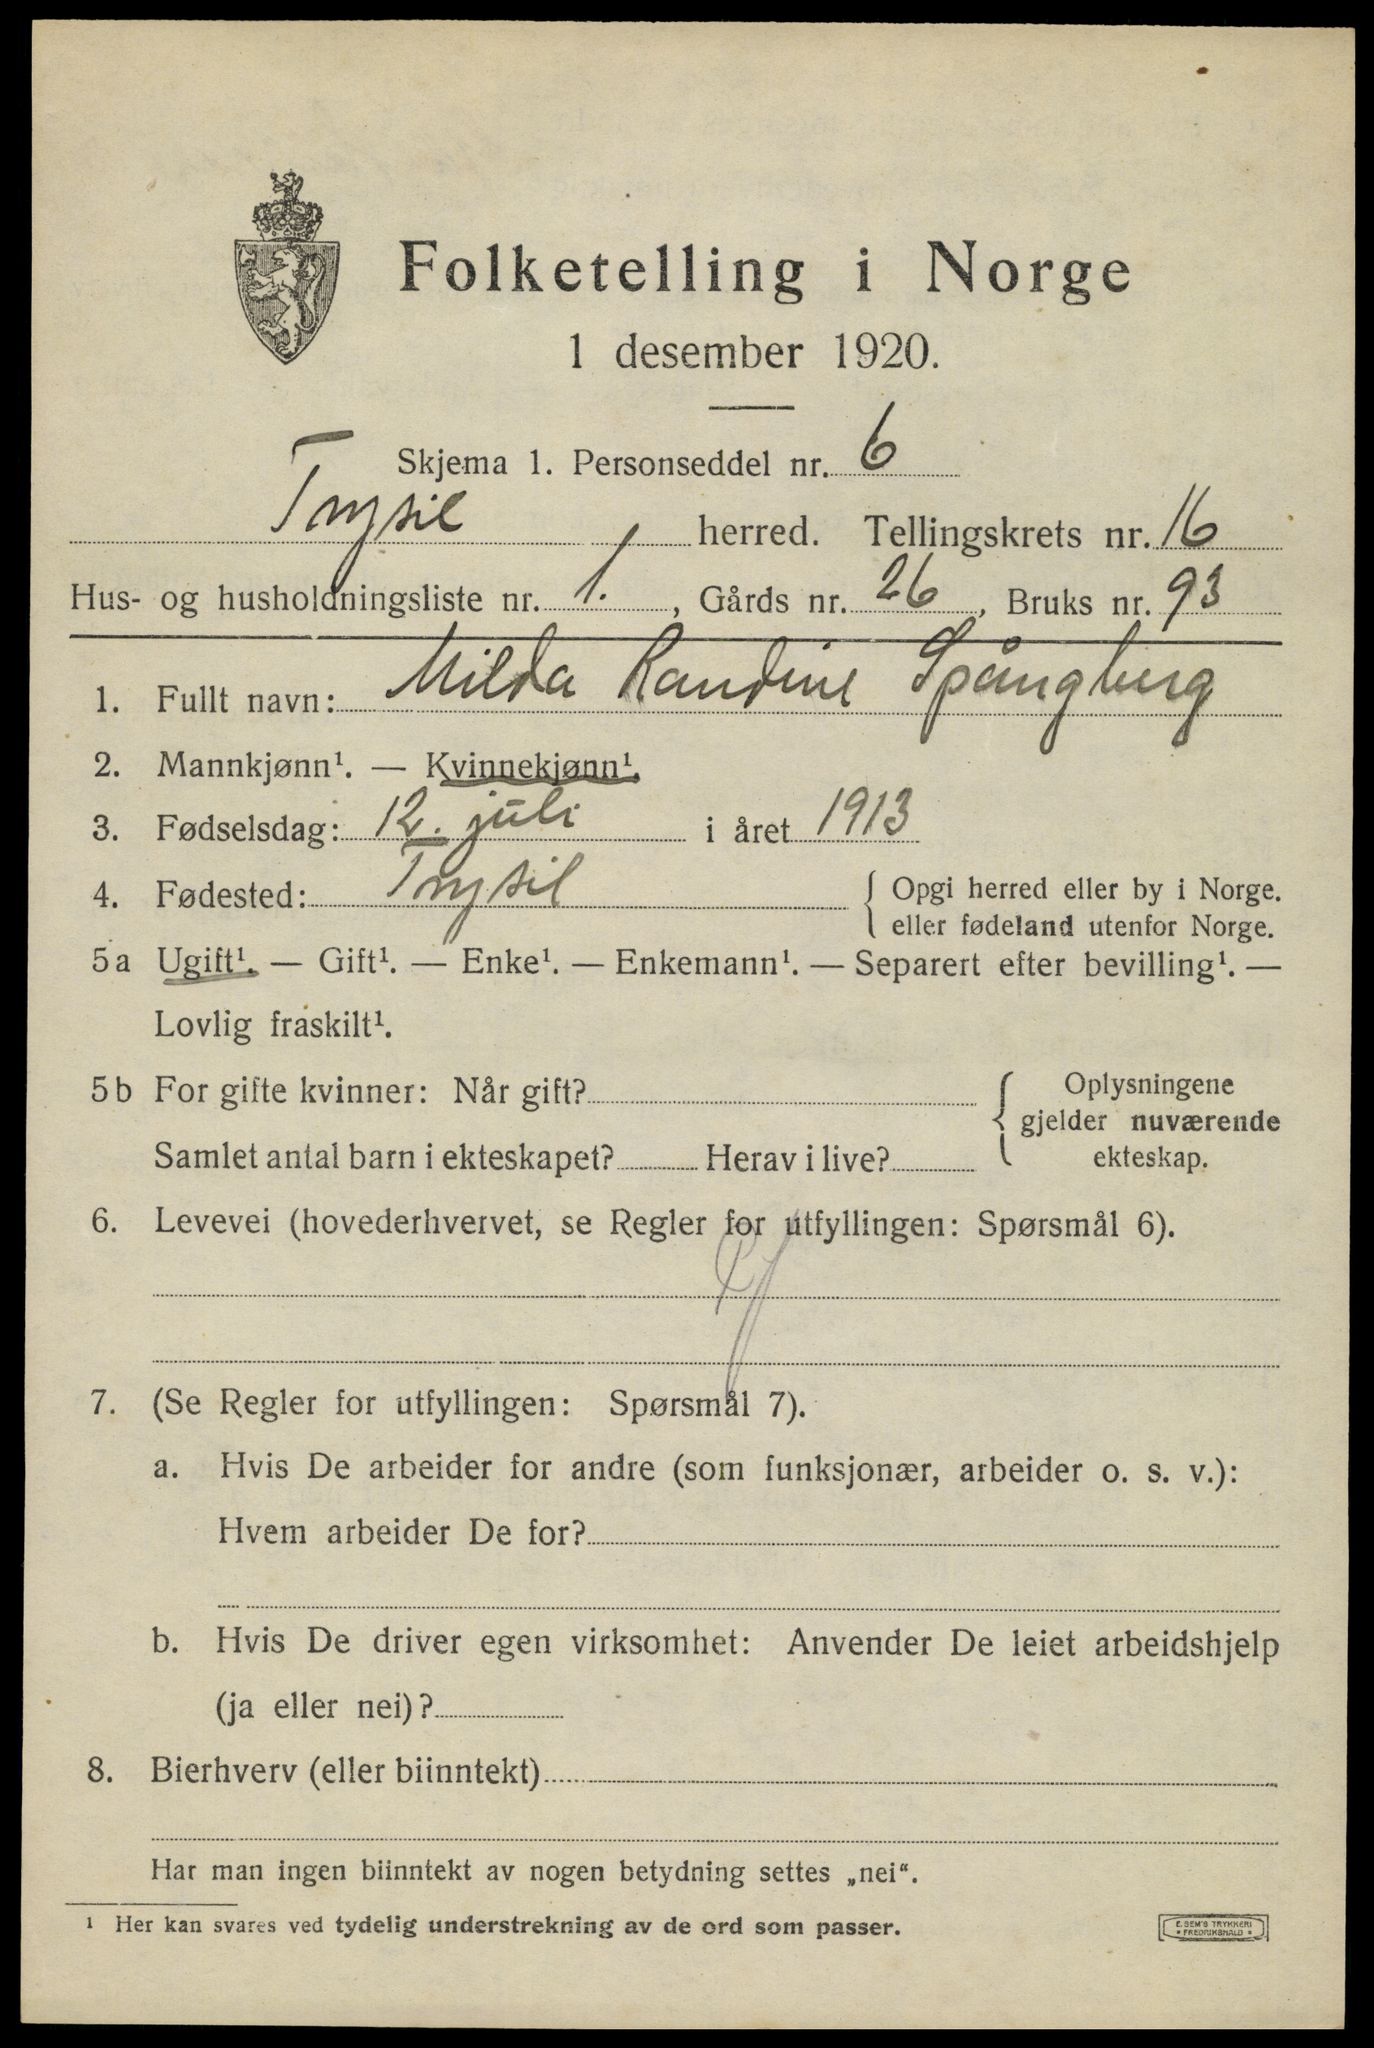 Folketelling i Norge
1 desember 1920.
Skjema 1. Personseddel nr. 6
Trysil herred. Tellingskrets nr. 16
Hus- og husholdningsliste nr. 1., Gårds nr. 26, Bruks nr. 93
1. Fullt navn: Milda Randine Spångberg
2. Mannkjønn¹. — Kvinnekjønn¹.
3. Fødselsdag: 12. juli i året 1913
4. Fødested: Trysil { Opgi herred eller by i Norge.
eller fødeland utenfor Norge.
5a Ugift¹. — Gift¹. — Enke¹. — Enkemann¹. — Separert efter bevilling¹. —
Lovlig fraskilt¹.
5b For gifte kvinner: Når gift? { Oplysningene
gjelder nuværende
Samlet antal barn i ekteskapet? Herav i live? ekteskap.
6. Levevei (hovederhvervet, se Regler for utfyllingen: Spørsmål 6).
7. (Se Regler for utfyllingen: Spørsmål 7).
a. Hvis De arbeider for andre (som funksjonær, arbeider o. s. v.):
Hvem arbeider De for?
b. Hvis De driver egen virksomhet: Anvender De leiet arbeidshjelp
(ja eller nei)?
8. Bierhverv (eller biinntekt)
Har man ingen biinntekt av nogen betydning settes „nei“.
¹ Her kan svares ved tydelig understrekning av de ord som passer.
E. SEM'S TRYKKERI
* FREDRIKSHALD *